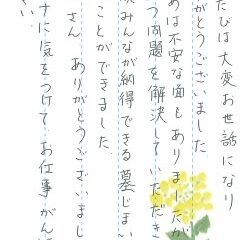 たびは大変お世話になり
がとうございました
めは不安な面もありましたが
つ問題を解決していただき
みんなが納得できる墓じまい
ことができました
さん ありがとうございまし
すに気をつけて、お仕事がん
さい